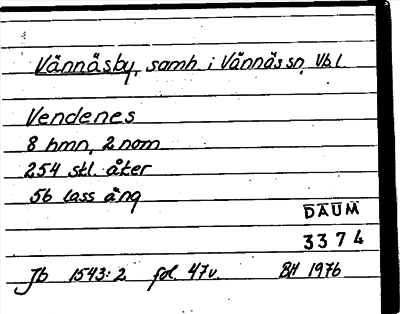 Vännäsby, samh. i Vännäs sn, Vb l.
Vendenes
8 hmn, 2 nom
254 stl. åker
56 lass äng
DAUM
3374
Jb 1543:2 fol. 47v. BH 1976